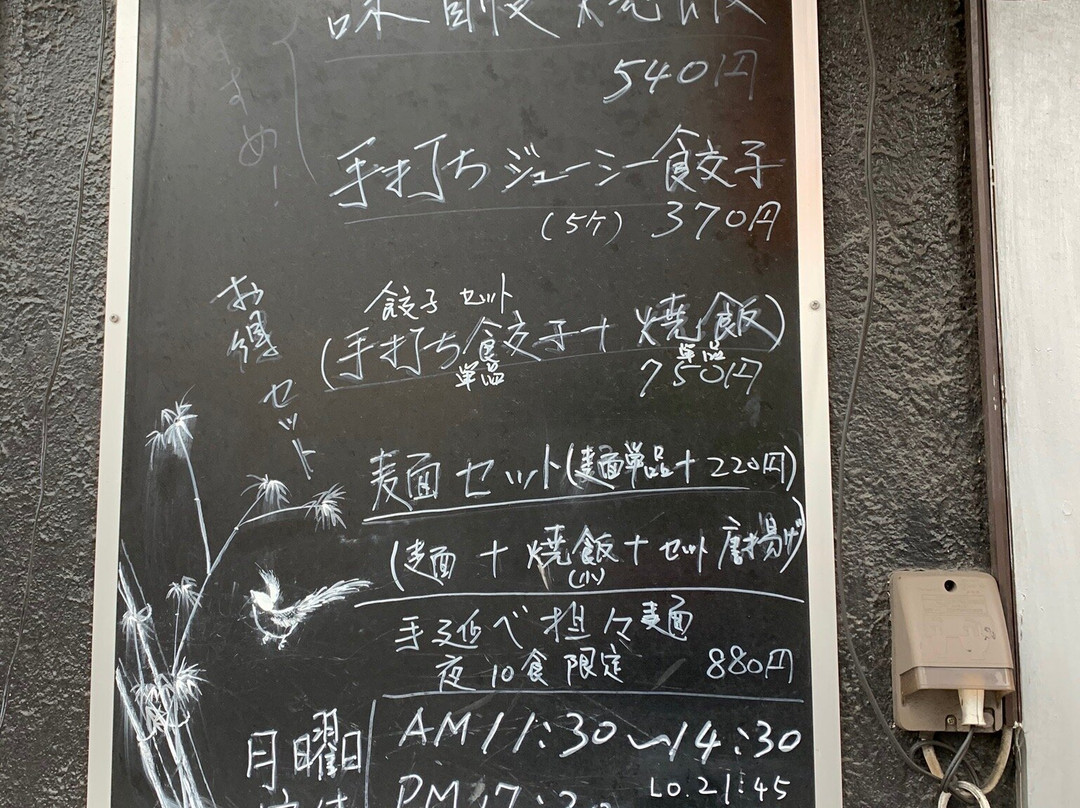 540円
すめ!
手打ちジューシー餃子
(5ケ) 370円
お得セット
餃子セット
(手打ち餃子+焼飯)
単品 単品
750円
麺セット(麺単品+220円)
(麺+焼飯+セット唐揚げ)
(小)
手延べ担々麺
夜10食限定 880円
月曜日
AM11:30~14:30
PM17:30
LO.21:45